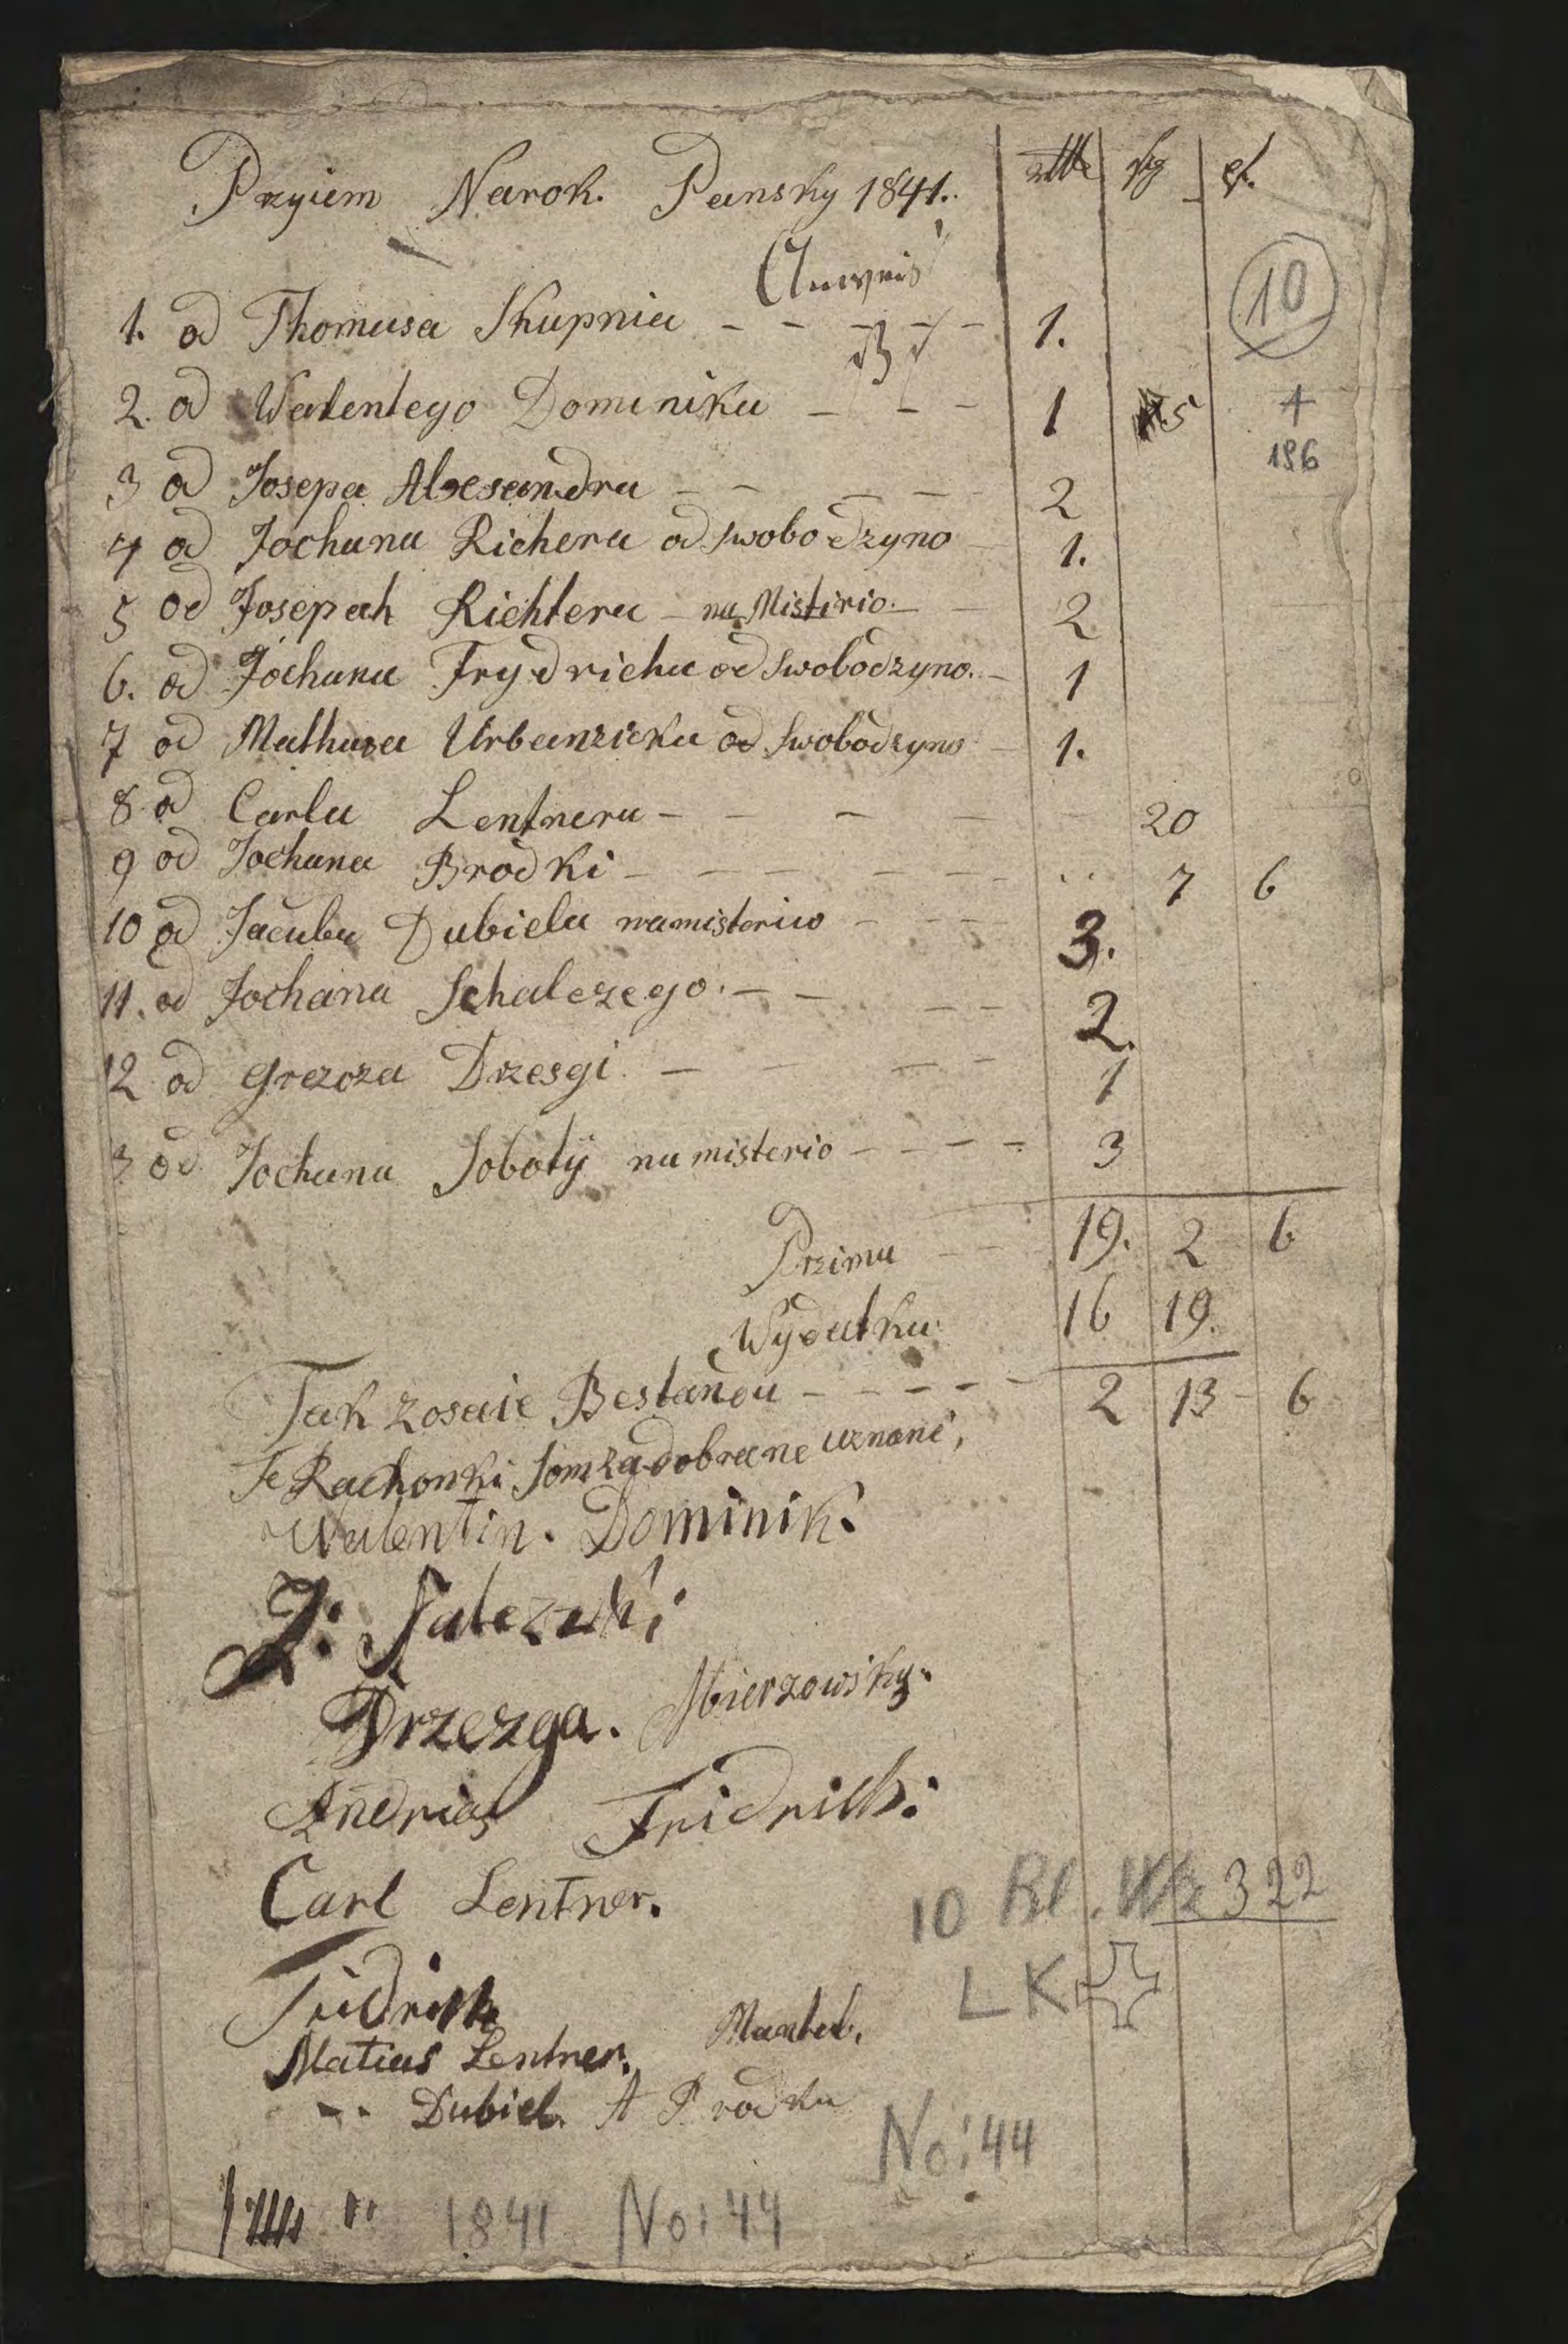 Przyiem Narok. Pansky 1841.
10
1. od Thomasa Skupnia - - - - - 1.
2. od Walentego Dominika - - - 1 5
+
186
3 od Josepa Alxesandra - - - - 2
4 od Jochana Richera od swobodzyno 1.
5 od Josepah Richtera - na Misterio. - 2
6. od Jochana Frydricha od swobodzyno. - 1
7 od Mathusa Urbanzicka od swobodzyno - 1.
8. od Carla Lentnera - - - 20
9 od Jochana Brodki - - - - - 7 6
10 od Jacuba Dubiela na misterio - - - 3.
11. od Jochana Schalczego. - - - - 2.
12 od Grezoza Drzesgi - - - - 1
3 od Jochana Sobotÿ na misterio - - - - 3
Przimu - - 19. 2 6
Wydatku 16 19.
Tak zosaie Bestandu - - - - - 2 13 - 6
Te Rachonki som za dobrane uznane,
Walentin. Dominik.
J: Salezuki
Drzezga. Mierzowsky.
Andrias Fridrich:
Carl Lentner.
10 Bl. 322
Fridrich
LK
Matius Lentner.
Dubiel. A Prodka
No: 44
1841 No: 44